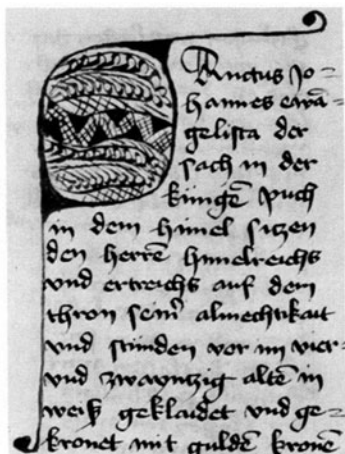 Sanctus Jo=
hannes ewā=
gelista der
sach in der
künigē puch
in dem himel sitzen
den herrē himelreichs
vnd ertreichs auf dem
thron seinˀ almechtikait
vnd stunden vor im vier=
vnd zwaintzig altē in
weiß geklaidet vnd ge=
kronet mit guldē kronē